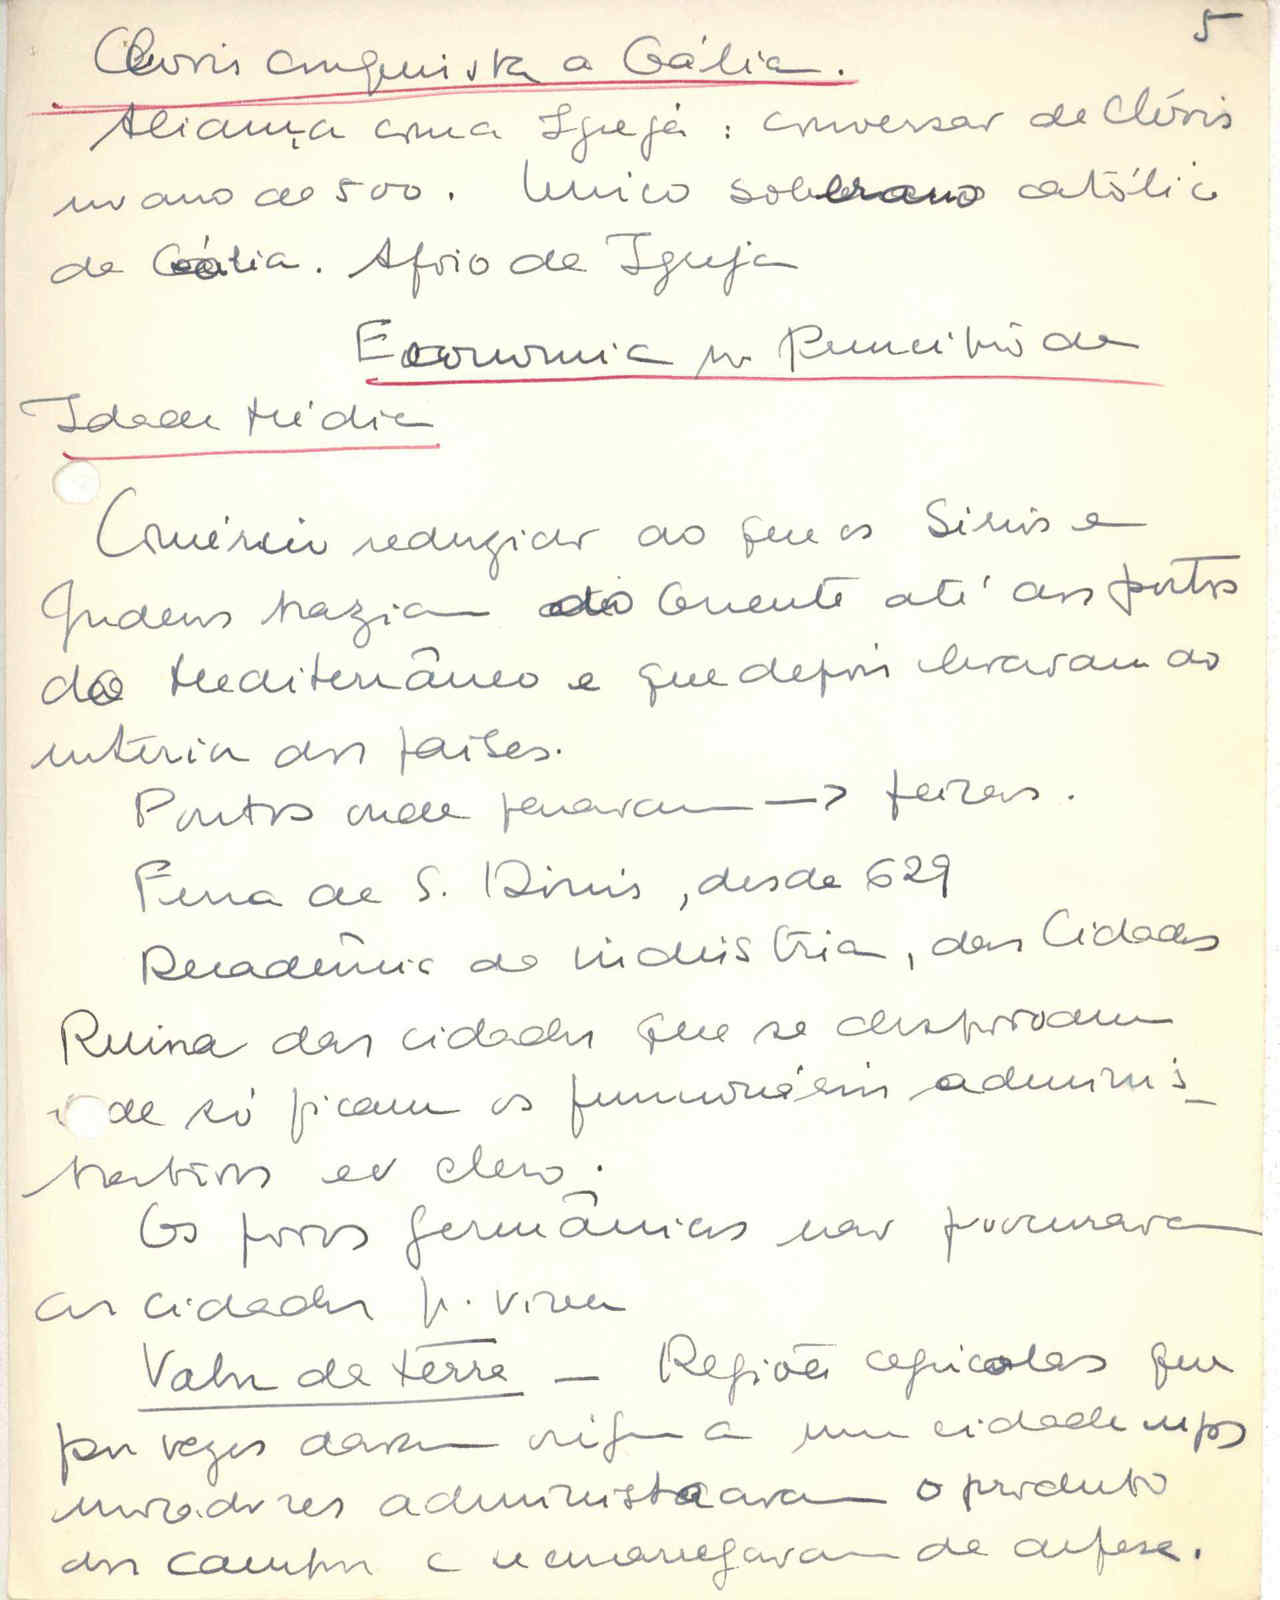 5
Clovis conquista a Gália.
Aliança com a Igreja : conversar de Clóvis
no ano de 500. Único soberano católico
da Gália. Apoio da Igreja
Economia no Princípio da
Idade Média
Comércio reduzido ao que os Sírios e
Judeus traziam do Oriente até aos portos
do Mediterrâneo e que depois levavam ao
interior dos países.
Pontos onde paravam —> feiras.
Feira de S. Dinis, desde 629
Decadência da indústria, das Cidades
Ruina das cidades que se despovoam
de só ficam os funcionários adminis_
trativos e o clero.
Os povos germânicos não procuravam
as cidades p. viver
Valor da terra — Regiões agrícolas que
por vezes davam origem a uma cidade cujos
moradores administravam o produto
dos campos e se encarregavam da defesa.